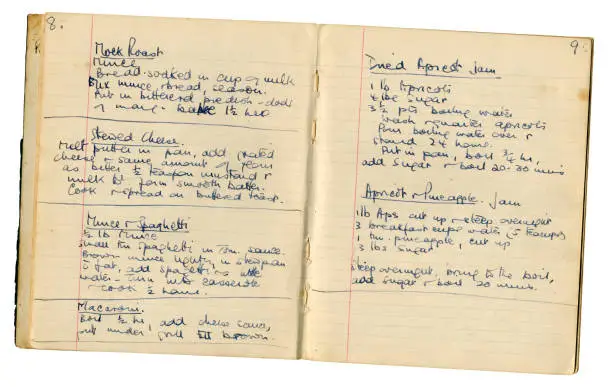 8.
Mock Roast
Mince
Bread soaked in cup of milk
Mix mince, bread, season.
Put in buttered piedish - dots
of marg - bake 1½ hrs
Stewed Cheese.
Melt butter in pan, add grated
cheese & same amount of
as butter ½ teaspoon mustard &
milk to form smooth batter.
Cook & spread on buttered toast.
Mince & Spaghetti
½ lb Mince
Small tin spaghetti in Tom. sauce.
Brown mince lightly in stewpan
fat, add spaghetti & little
water - turn into casserole
& cook ½ hour.
Macaroni.
Boil ½ hr, add cheese sauce,
put under grill till brown.
9.
Dried Apricot Jam
1 lb Apricots
4 lbs Sugar
3½ pts boiling water
Wash & quarter apricots
Pour boiling water over &
stand 24 hours.
Put in pan, boil ¾ hr,
add sugar & boil 20-30 mins
Apricot & Pineapple Jam
1 lb Aps cut up & steep overnight
3 breakfast cups water (5 teacups)
1 tin pineapple, cut up
3 lbs sugar
Steep overnight, bring to the boil,
add sugar & boil 20 mins.